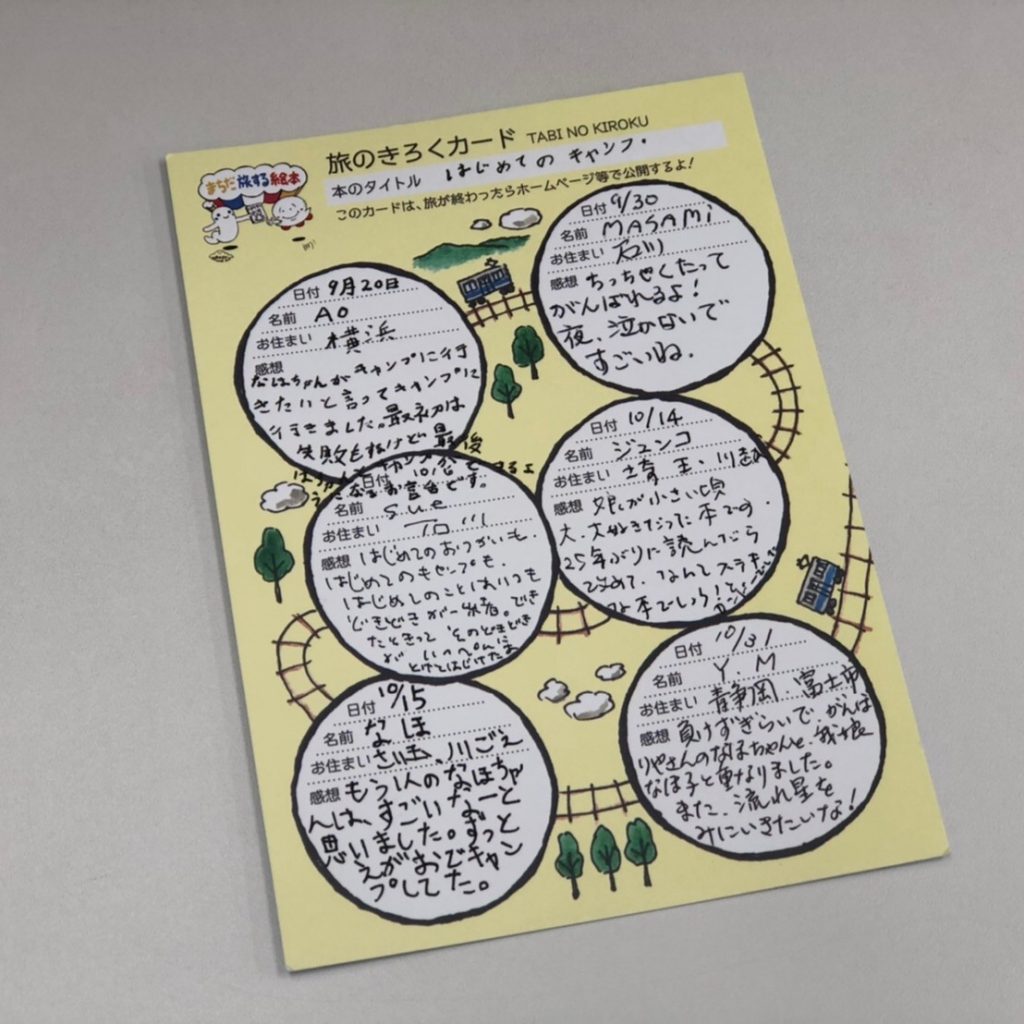 旅のきろくカード TABI NO KIROKU
まちだ旅する絵本
本のタイトル はじめての キャンプ.
このカードは、旅が終わったらホームページ等で公開するよ!
日付 9月20日
名前 AO
お住まい 横浜
感想
なほちゃんがキャンプに行
きたいと言ってキャンプに
行きました。最初は
失敗もねけど最後
お話です。
日付 9/30
名前 MASAMi
お住まい 石川
感想 ちっちゃくたって
がんばれるよ!
夜、泣かないで
すごいね.
日付 10/6
名前 Sue
お住まい 石川
感想 はじめてのおつかいも.
はじめてのキャンプも.
はじめてのことはいつも
どきどきが一緒。でき
たときって そのどきどき
が いっぺんに
日付 10/14
名前 ジュンコ
お住まい 埼玉・川越
感想 娘が小さい頃
大、大好きだった本です.
25年ぶりに読んだら
改めて、なんてステキ
な本でしょう!
日付 10/15
名前 なほ
お住まい さい玉、川ごえ
感想 もう1人のなほちゃ
んは、すごいなーと
思いました。ずっと
えがおでキャン
プしてた。
日付 10/31
名前 Y M
お住まい 静岡・富士市
感想 負けずぎらいで、がんば
りやさんのなほちゃんと、我が娘
なほ子と重なりました。
また、流れ星を
みにいきたいな!